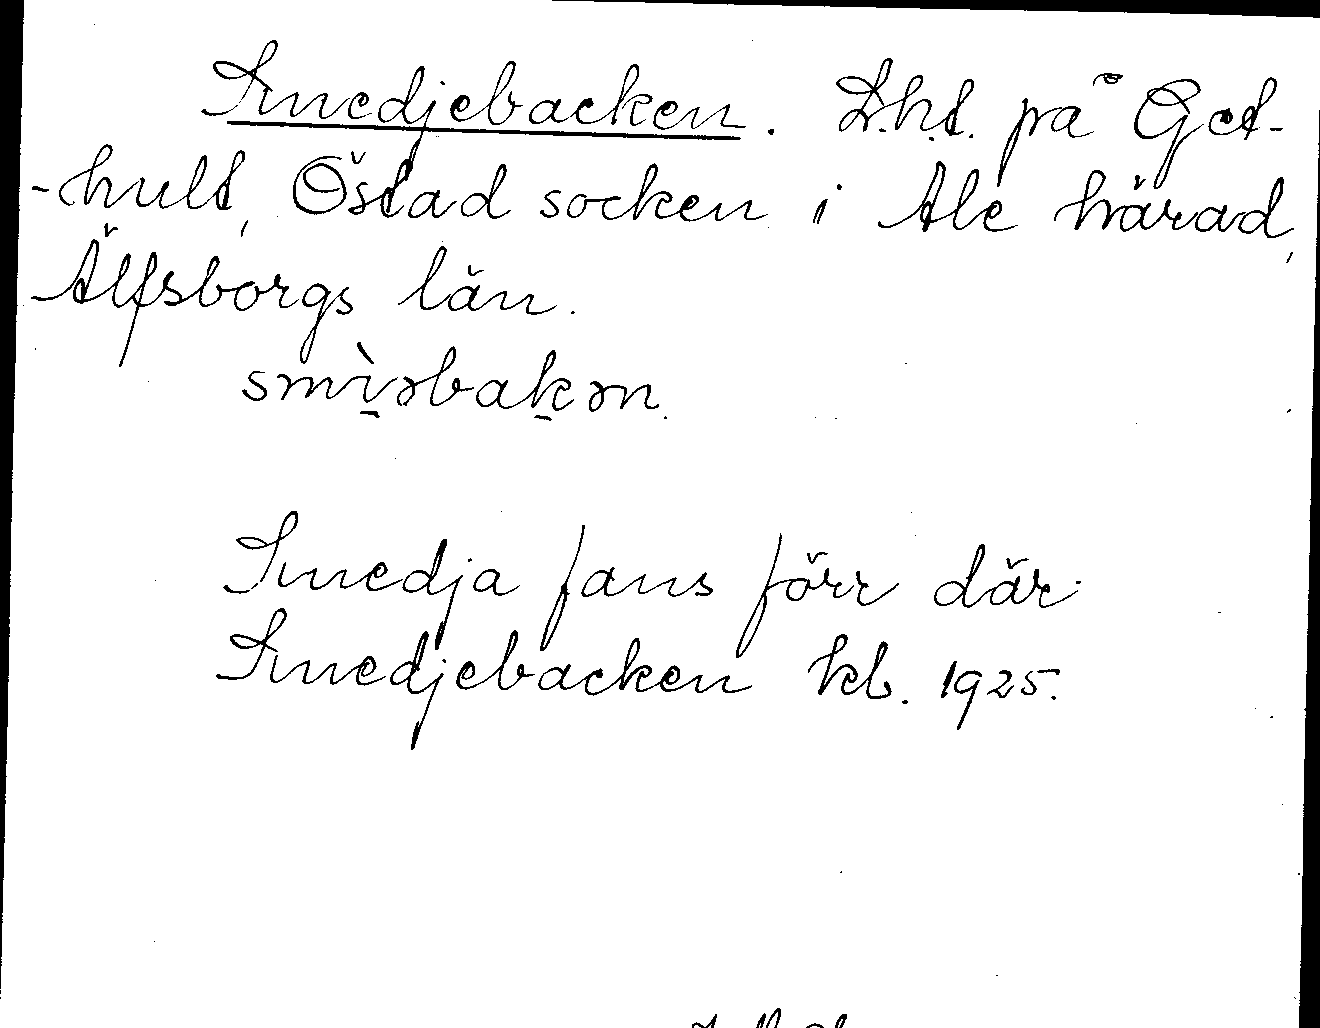 Smedjebacken. L.h.t. på Get-
-hult, Östad socken i Ale härad,
Älfsborgs län.
smìəbakən.
Smedja fans förr där.
Smedjebacken kb. 1925.